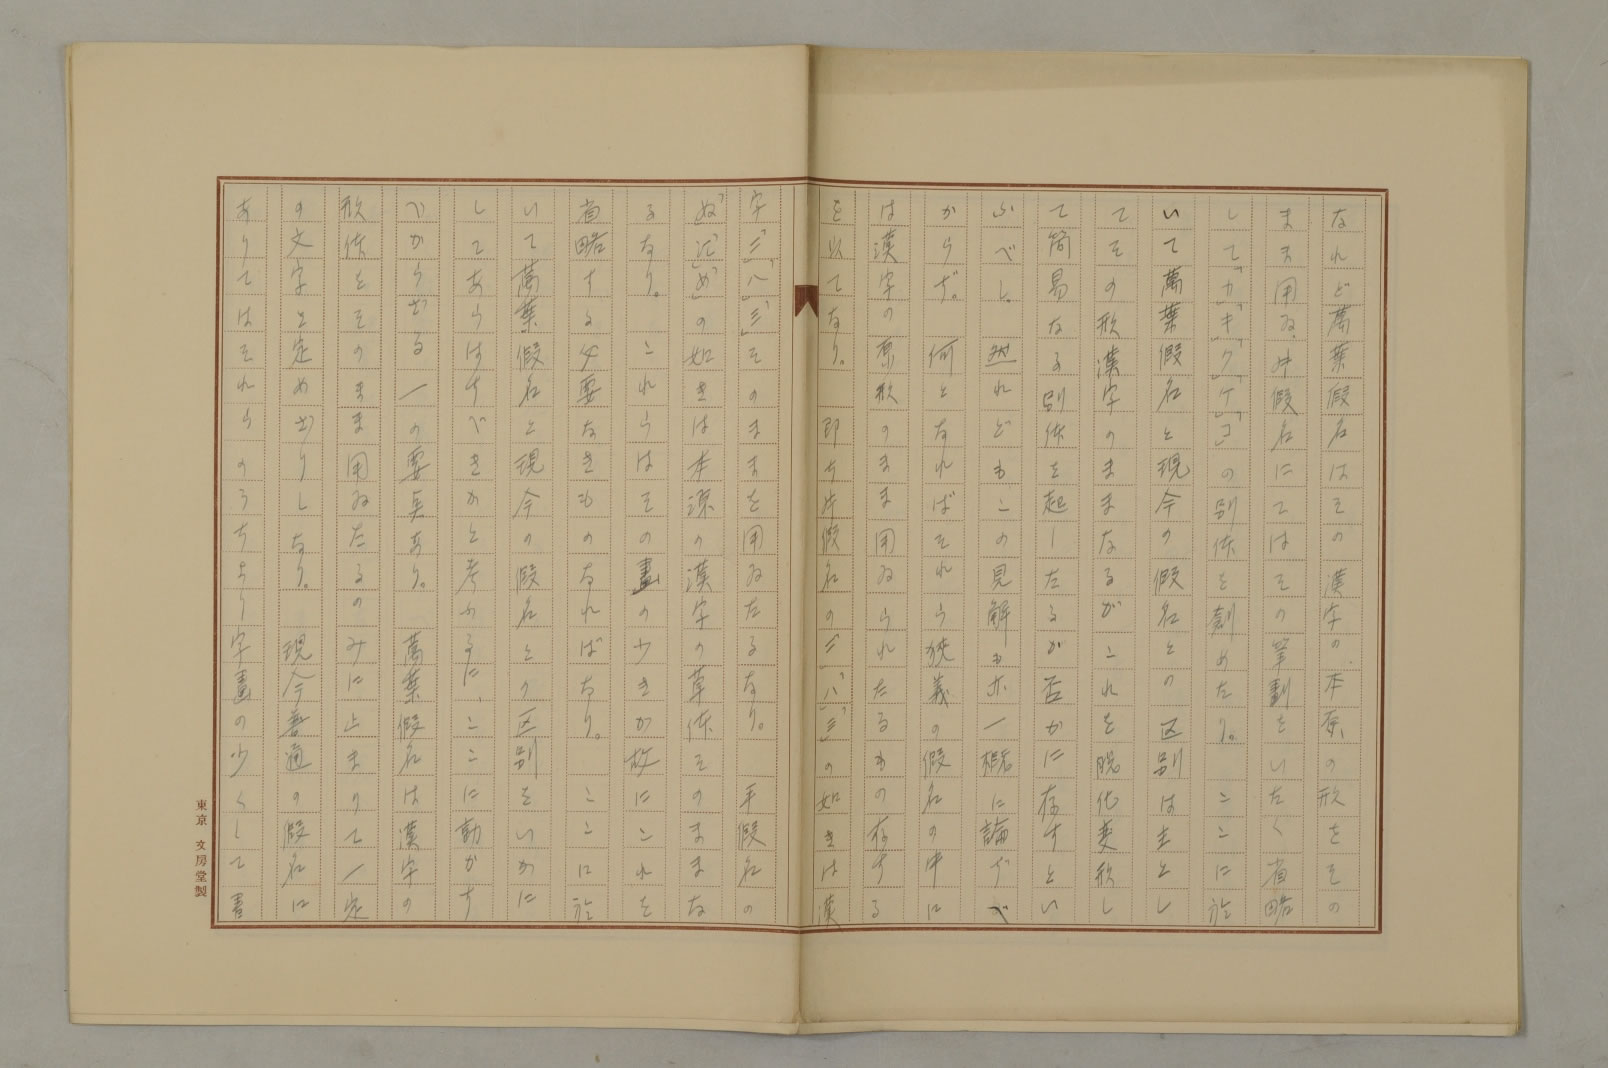 なれど萬葉假名はその漢字の本來の形をその
まま用ゐ、片假名にてはその筆劃をいたく省略
して「カ」「キ」「ク」「ケ」「コ」の別体を創めたり。ここに於
いて萬葉假名と現今の假名との区別は主とし
てその形漢字のままなるがこれを脱化変形し
て簡易なる別体を起したるか否かに存すとい
ふべし。然れどもこの見解も亦一概に論ずべ
からず。何となればそれら狹義の假名の中に
は漢字の原形のまま用ゐられたるもの存する
を以てなり。即ち片假名の「ミ」「ハ」「ミ」の如きは漢
字「三」「八」「三」そのままを用ゐたるなり。平假名の
「ぬ」「め」の如きは本源の漢字の草体そのままな
るなり。これらはその畫の少きか故にこれを
省略する必要なきものなればなり。ここに於
いて萬葉假名と現今の假名との区別をいかに
してあらはすべきかと考ふるに、ここに動かす
べからざる一の要点あり。萬葉假名は漢字の
形体をそのまま用ゐたるのみに止まりて一定
の文字と定め出りしなり。現今普通の假名に
ありてはそれらのうちより字畫の少くして書
東京 文房堂製